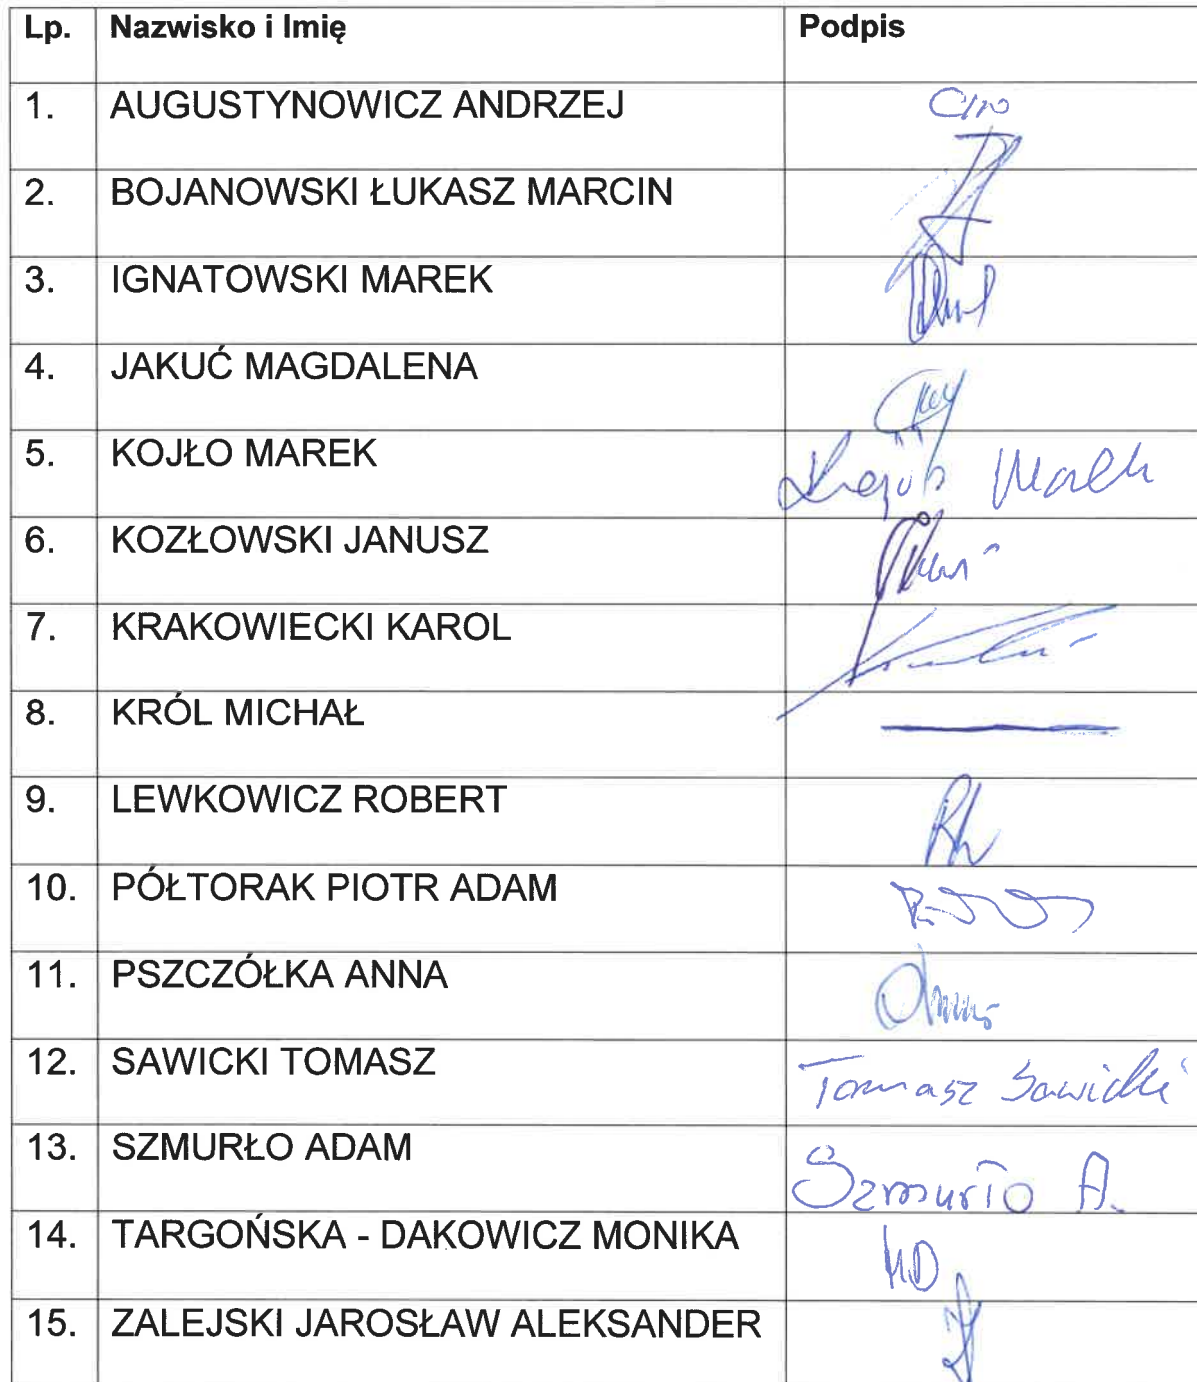 Lp. Nazwisko i Imię Podpis
1. AUGUSTYNOWICZ ANDRZEJ
2. BOJANOWSKI ŁUKASZ MARCIN
3. IGNATOWSKI MAREK
4. JAKUĆ MAGDALENA
5. KOJŁO MAREK Marek
6. KOZŁOWSKI JANUSZ
7. KRAKOWIECKI KAROL
8. KRÓL MICHAŁ
9. LEWKOWICZ ROBERT
10. PÓŁTORAK PIOTR ADAM
11. PSZCZÓŁKA ANNA
12. SAWICKI TOMASZ Tomasz Sawicki
13. SZMURŁO ADAM Szmurło A.
14. TARGOŃSKA - DAKOWICZ MONIKA MD
15. ZALEJSKI JAROSŁAW ALEKSANDER